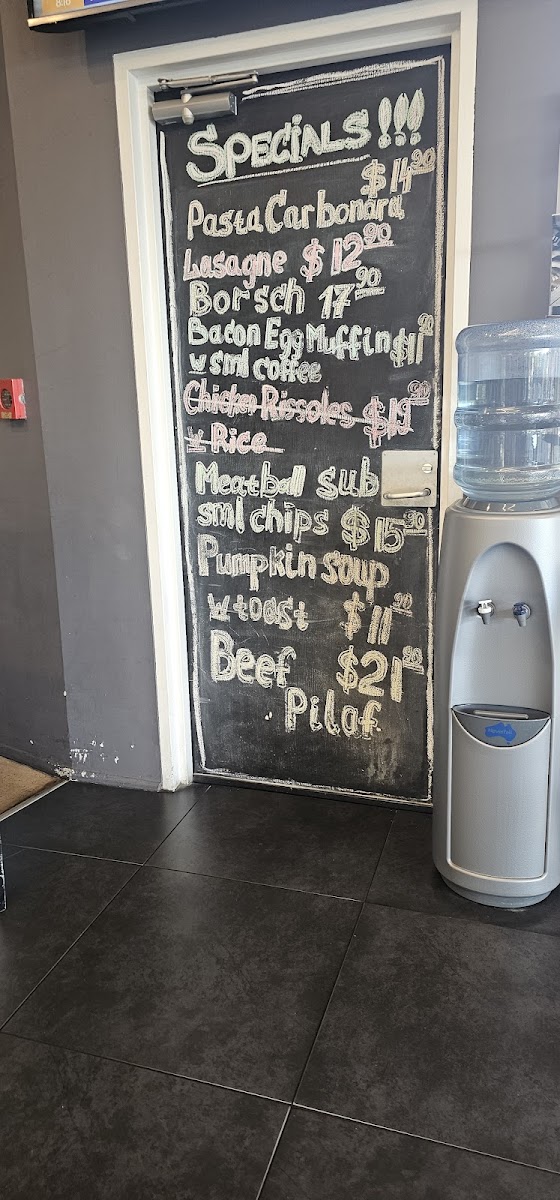 8:16
SPECiALS!!!
$14 90
Pasta Carbonara
Lasagne $12 90
Borsch 17 90
Bacon Egg Muffin $11 90
w sml coffee
Chicken Rissoles $19 90
w Rice
Meatball sub
sml chips $15 90
Pumpkin soup
w toast $11 90
Beef $21 90
Pilaf